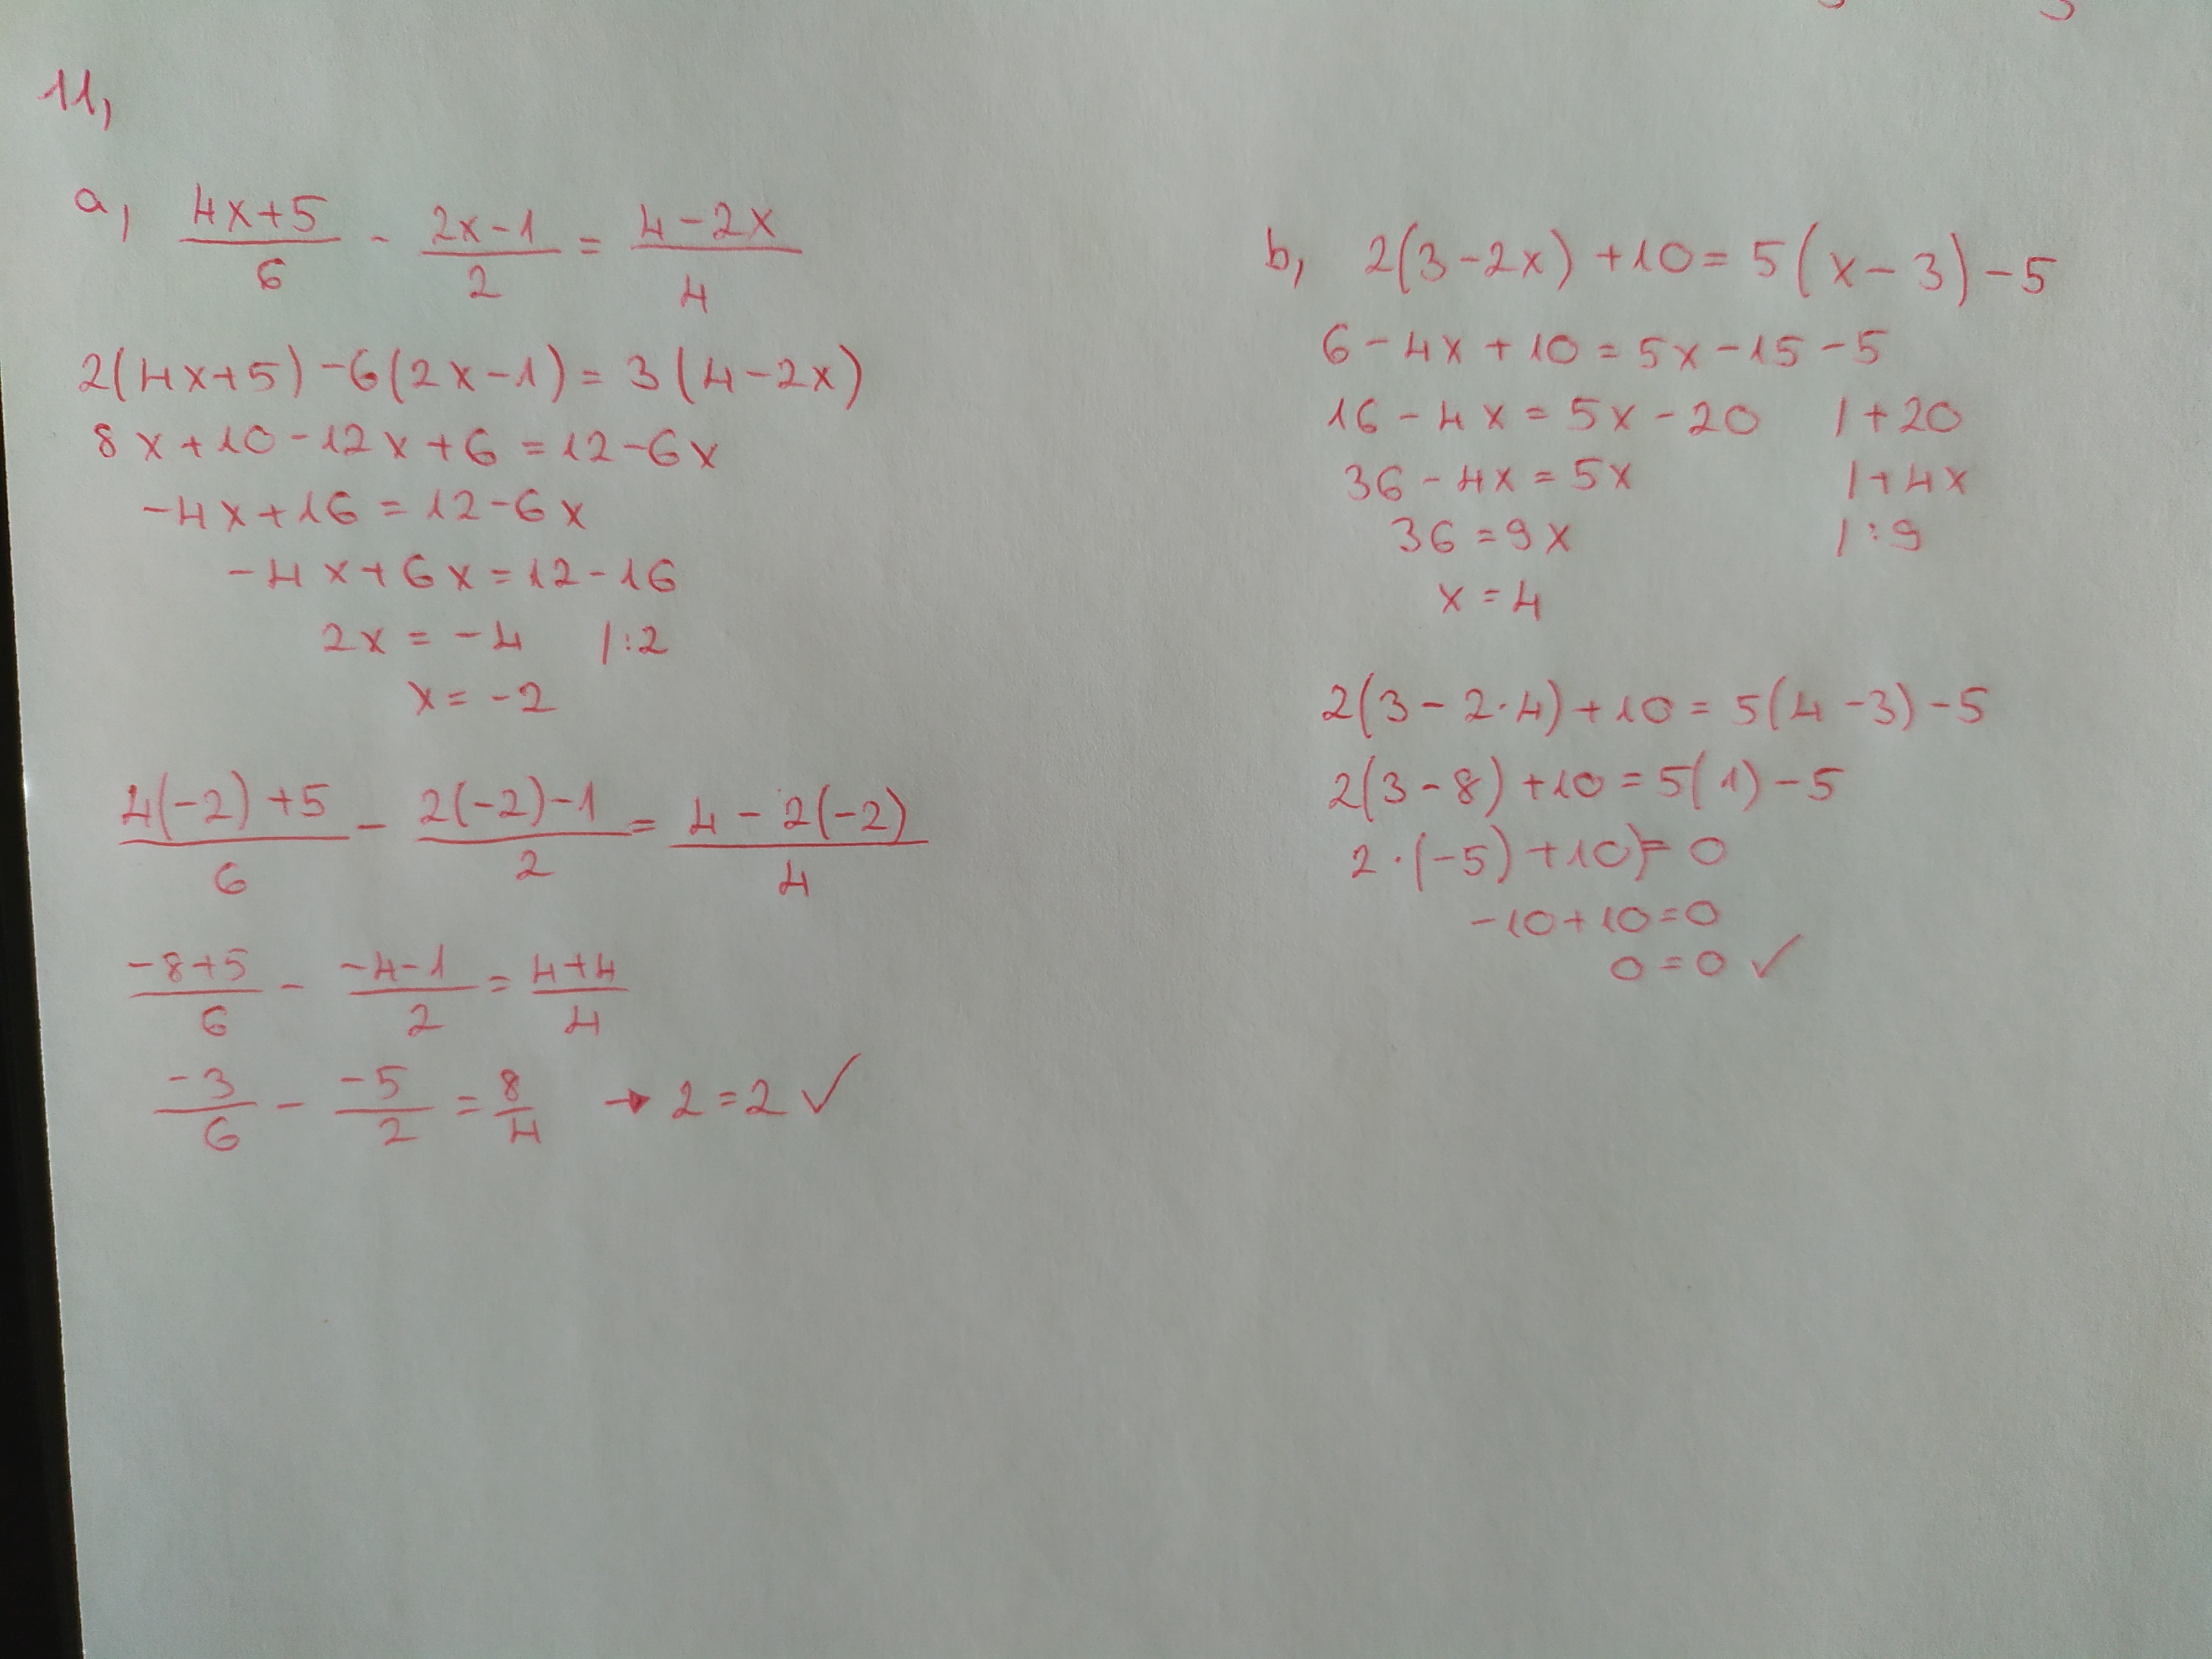 11,
a, (4x+5)/6 - (2x-1)/2 = (4-2x)/4
2(4x+5)-6(2x-1)=3(4-2x)
8x+10-12x+6=12-6x
-4x+16=12-6x
-4x+6x=12-16
2x=-4 /:2
x=-2
(4(-2)+5)/6 - (2(-2)-1)/2 = (4-2(-2))/4
(-8+5)/6 - (-4-1)/2 = (4+4)/4
(-3)/6 - (-5)/2 = 8/4 → 2=2 ✓
b, 2(3-2x)+10=5(x-3)-5
6-4x+10=5x-15-5
16-4x=5x-20 /+20
36-4x=5x /+4x
36=9x /:9
x=4
2(3-2·4)+10=5(4-3)-5
2(3-8)+10=5(1)-5
2·(-5)+10)=0
-10+10=0
0=0 ✓